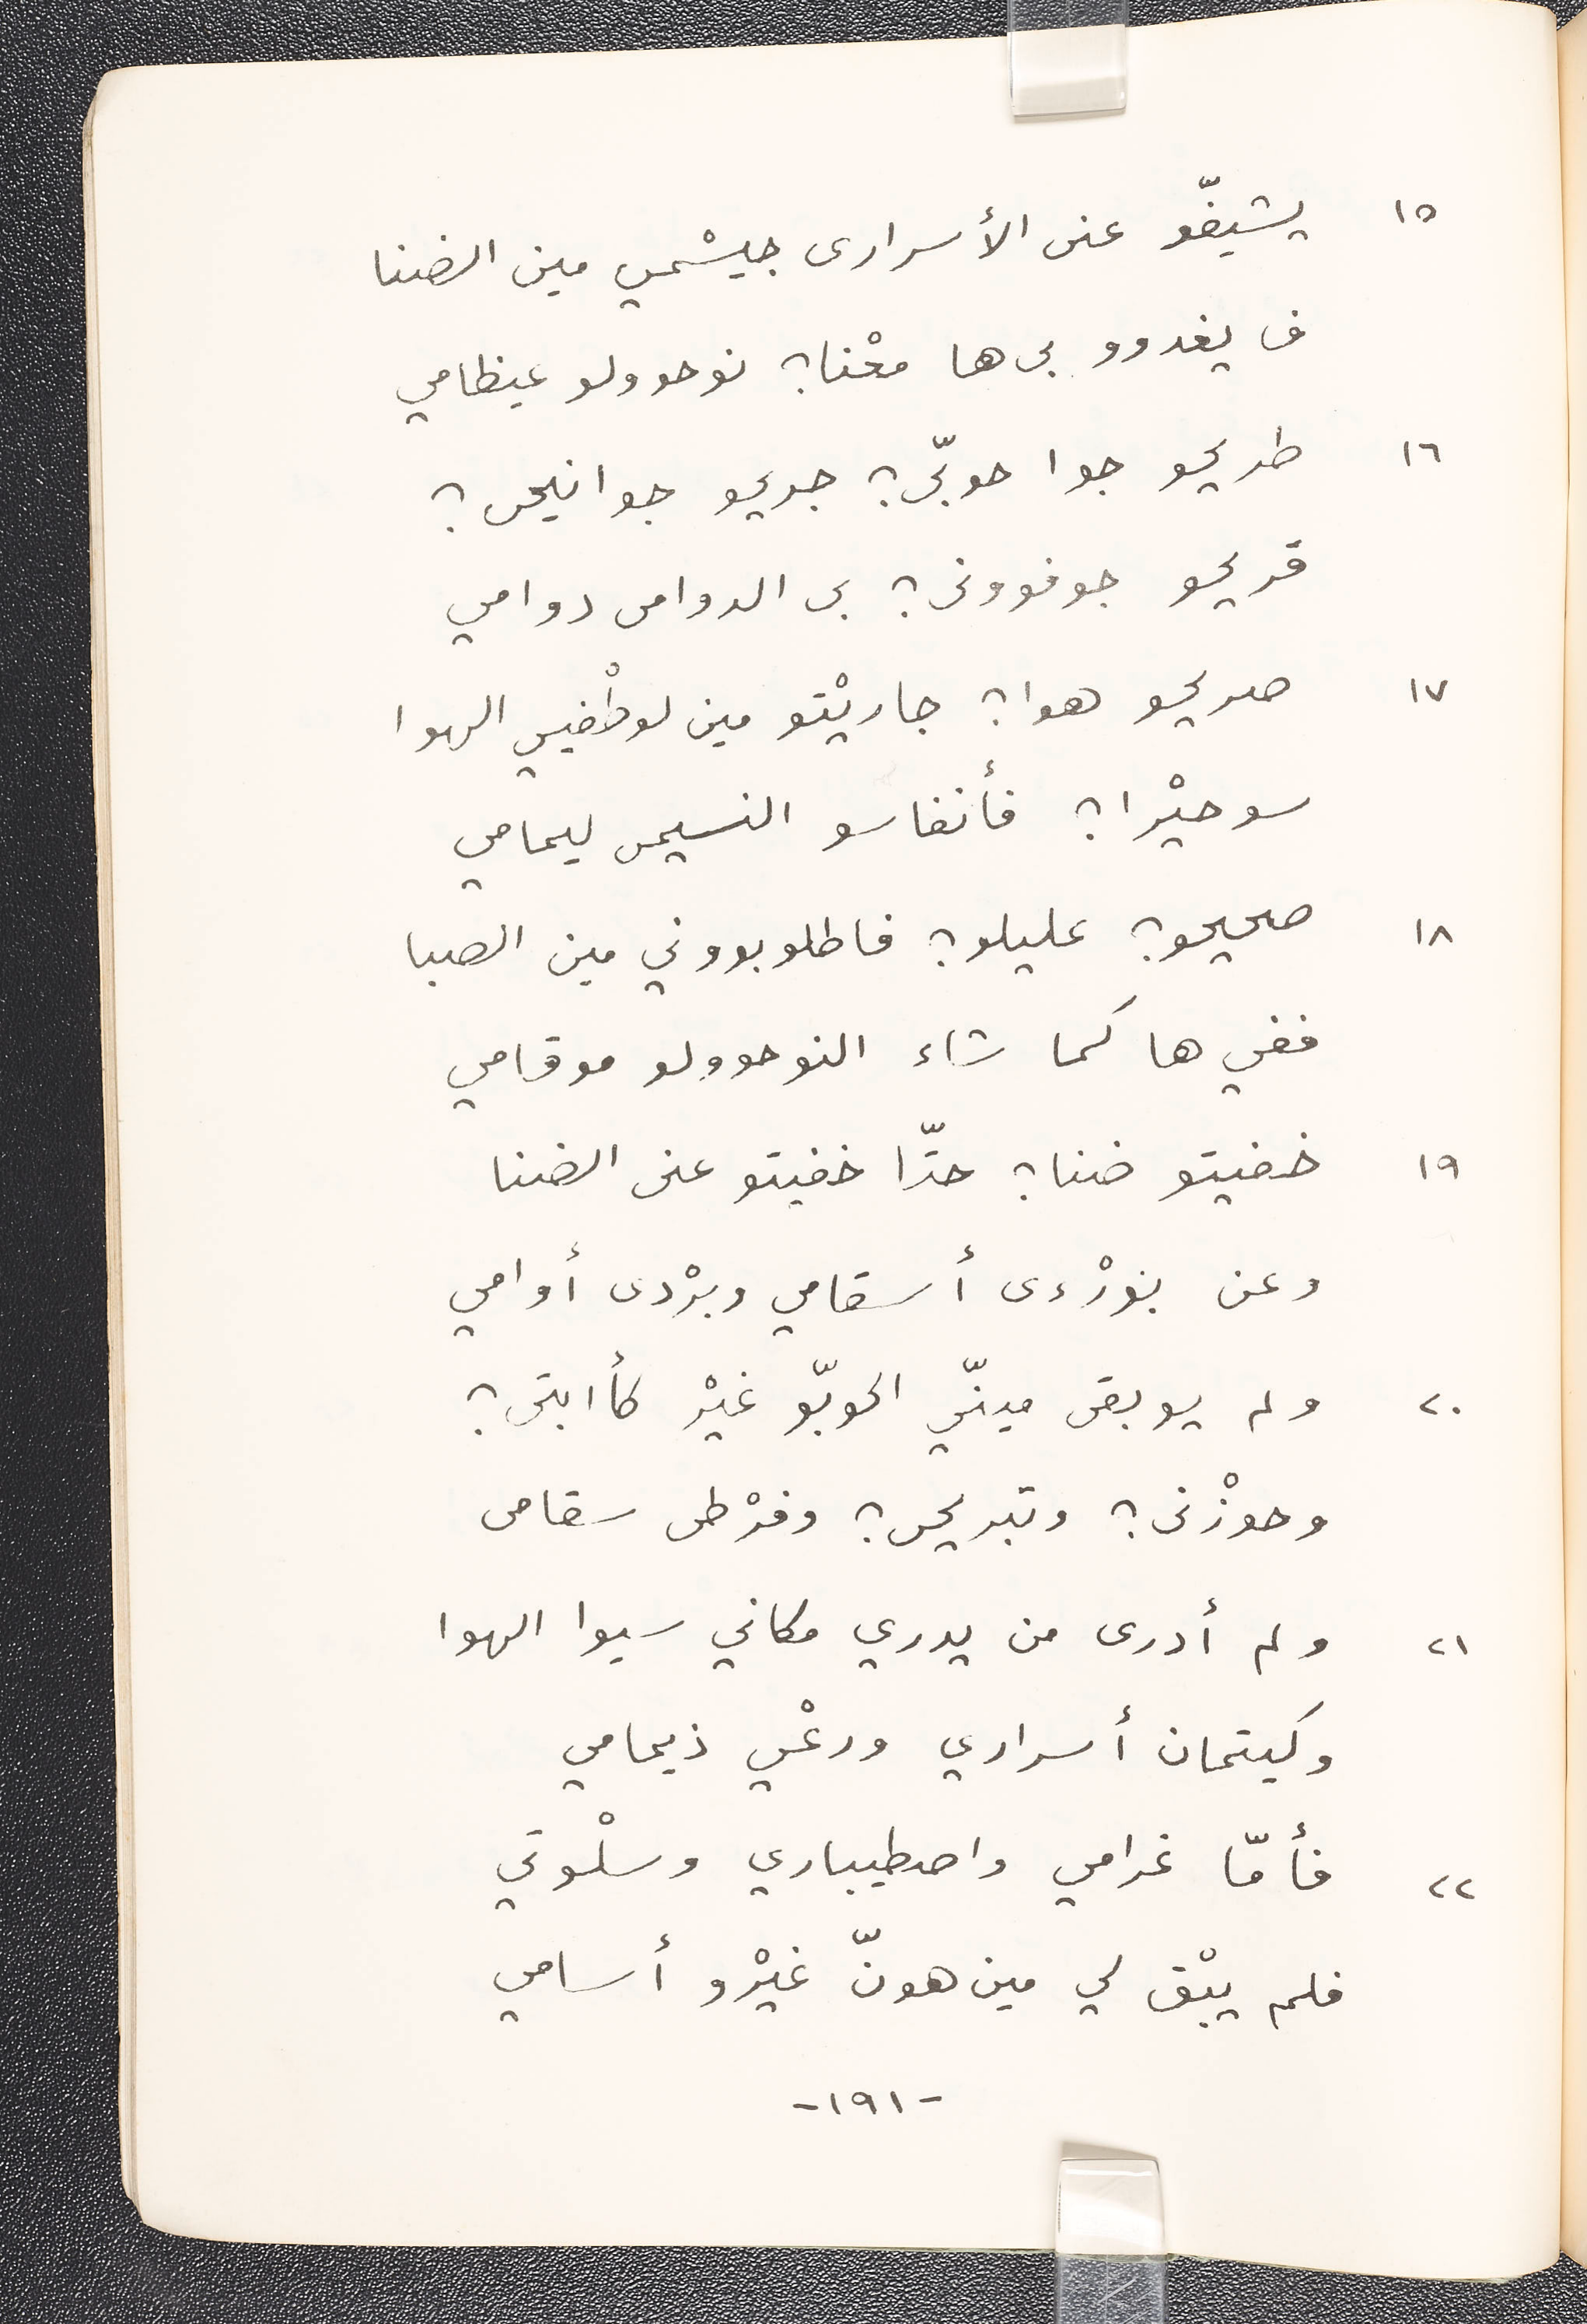 ١٥ يشيفّو عنى الأسرارى جيسْمي مين الضنا
فى يغدوو بى ها معْنا؟ نوحوولو عيظامي
١٦ طريحو جوا حوبّى؟ جريحو جوانيحى؟
قريحو جوفوونى؟ بى الدوامى دوامي
١٧ صريحو هوا؟ جاريْتو مين لوطْفيي الهوا
سوحيْرا؟ فأنفاسو النسيمى ليمامي
١٨ صحيحو؟ عليلو؟ فاطلوبووني مين الصبا
ففي ها كما شاء النوحوولو موقامي
١٩ خفيتو ضنا؟ حتّا خفيتو عنى الضنا
وعن بورْءى أسقامي وبرْدى أوامي
٢٠ ولم يوبقى مينّي الحوبّو غيْر كأابتى؟
وحوزْنى؟ وتبريحى؟ وفرْطى سقامى
٢١ ولم أدرى من يدري مكاني سيوا الهوا
وكيتمان أسراري ورعْي ذيمامي
٢٢ فأمّا غرامي واصطيباري وسلْوتي
فلم يبْق لي مين هونّ غيْرو أسامي
-١٩١-